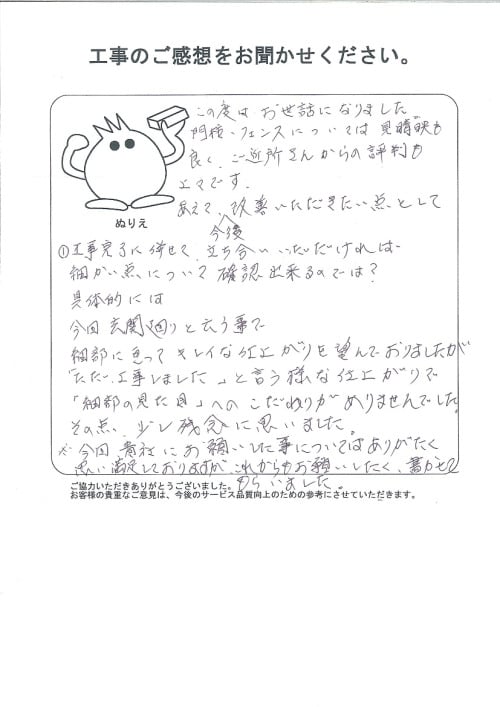 工事のご感想をお聞かせください。
この度は お世話になりました。
門檣・フェンスについては 見晴映も
良く、ご近所さんからの評判も
上々です。
あえて、改善いただきたい点として
今後
ぬりえ
①工事完了に併せて、立ち合いいただければ
細かい点について確認出来るのでは?
具体的には
今回玄関廻りと云う事で
細部に亘って キレイな仕上がりを望んでおりましたが
「ただ、工事しました」と言う様な仕上がりで
「細部の見た目」へのこだわりがありませんでした。
その点、少し残念に思いました。
今回 貴社にお願いした事についてはありがたく
思い満足しておりますが、これからもお願いしたく、書かせて
もらいました。
ご協力いただきありがとうございました。
お客様の貴重なご意見は、今後のサービス品質向上のための参考にさせていただきます。